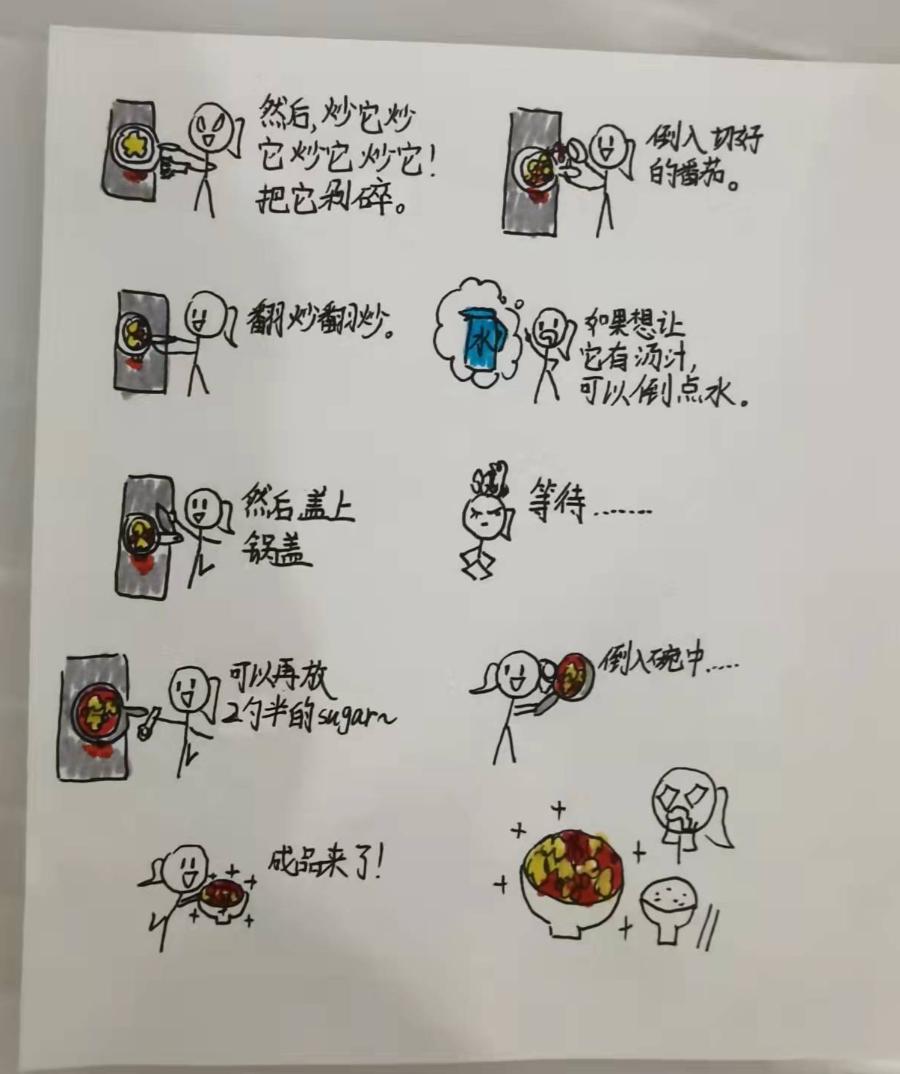 然后,炒它炒
它炒它炒它!
把它剁碎。
倒入切好
的番茄。
翻炒翻炒。
水
如果想让
它有汤汁,
可以倒点水。
然后盖上
锅盖
等待.......
可以再放
2勺半的sugar~
倒入碗中.....
成品来了!